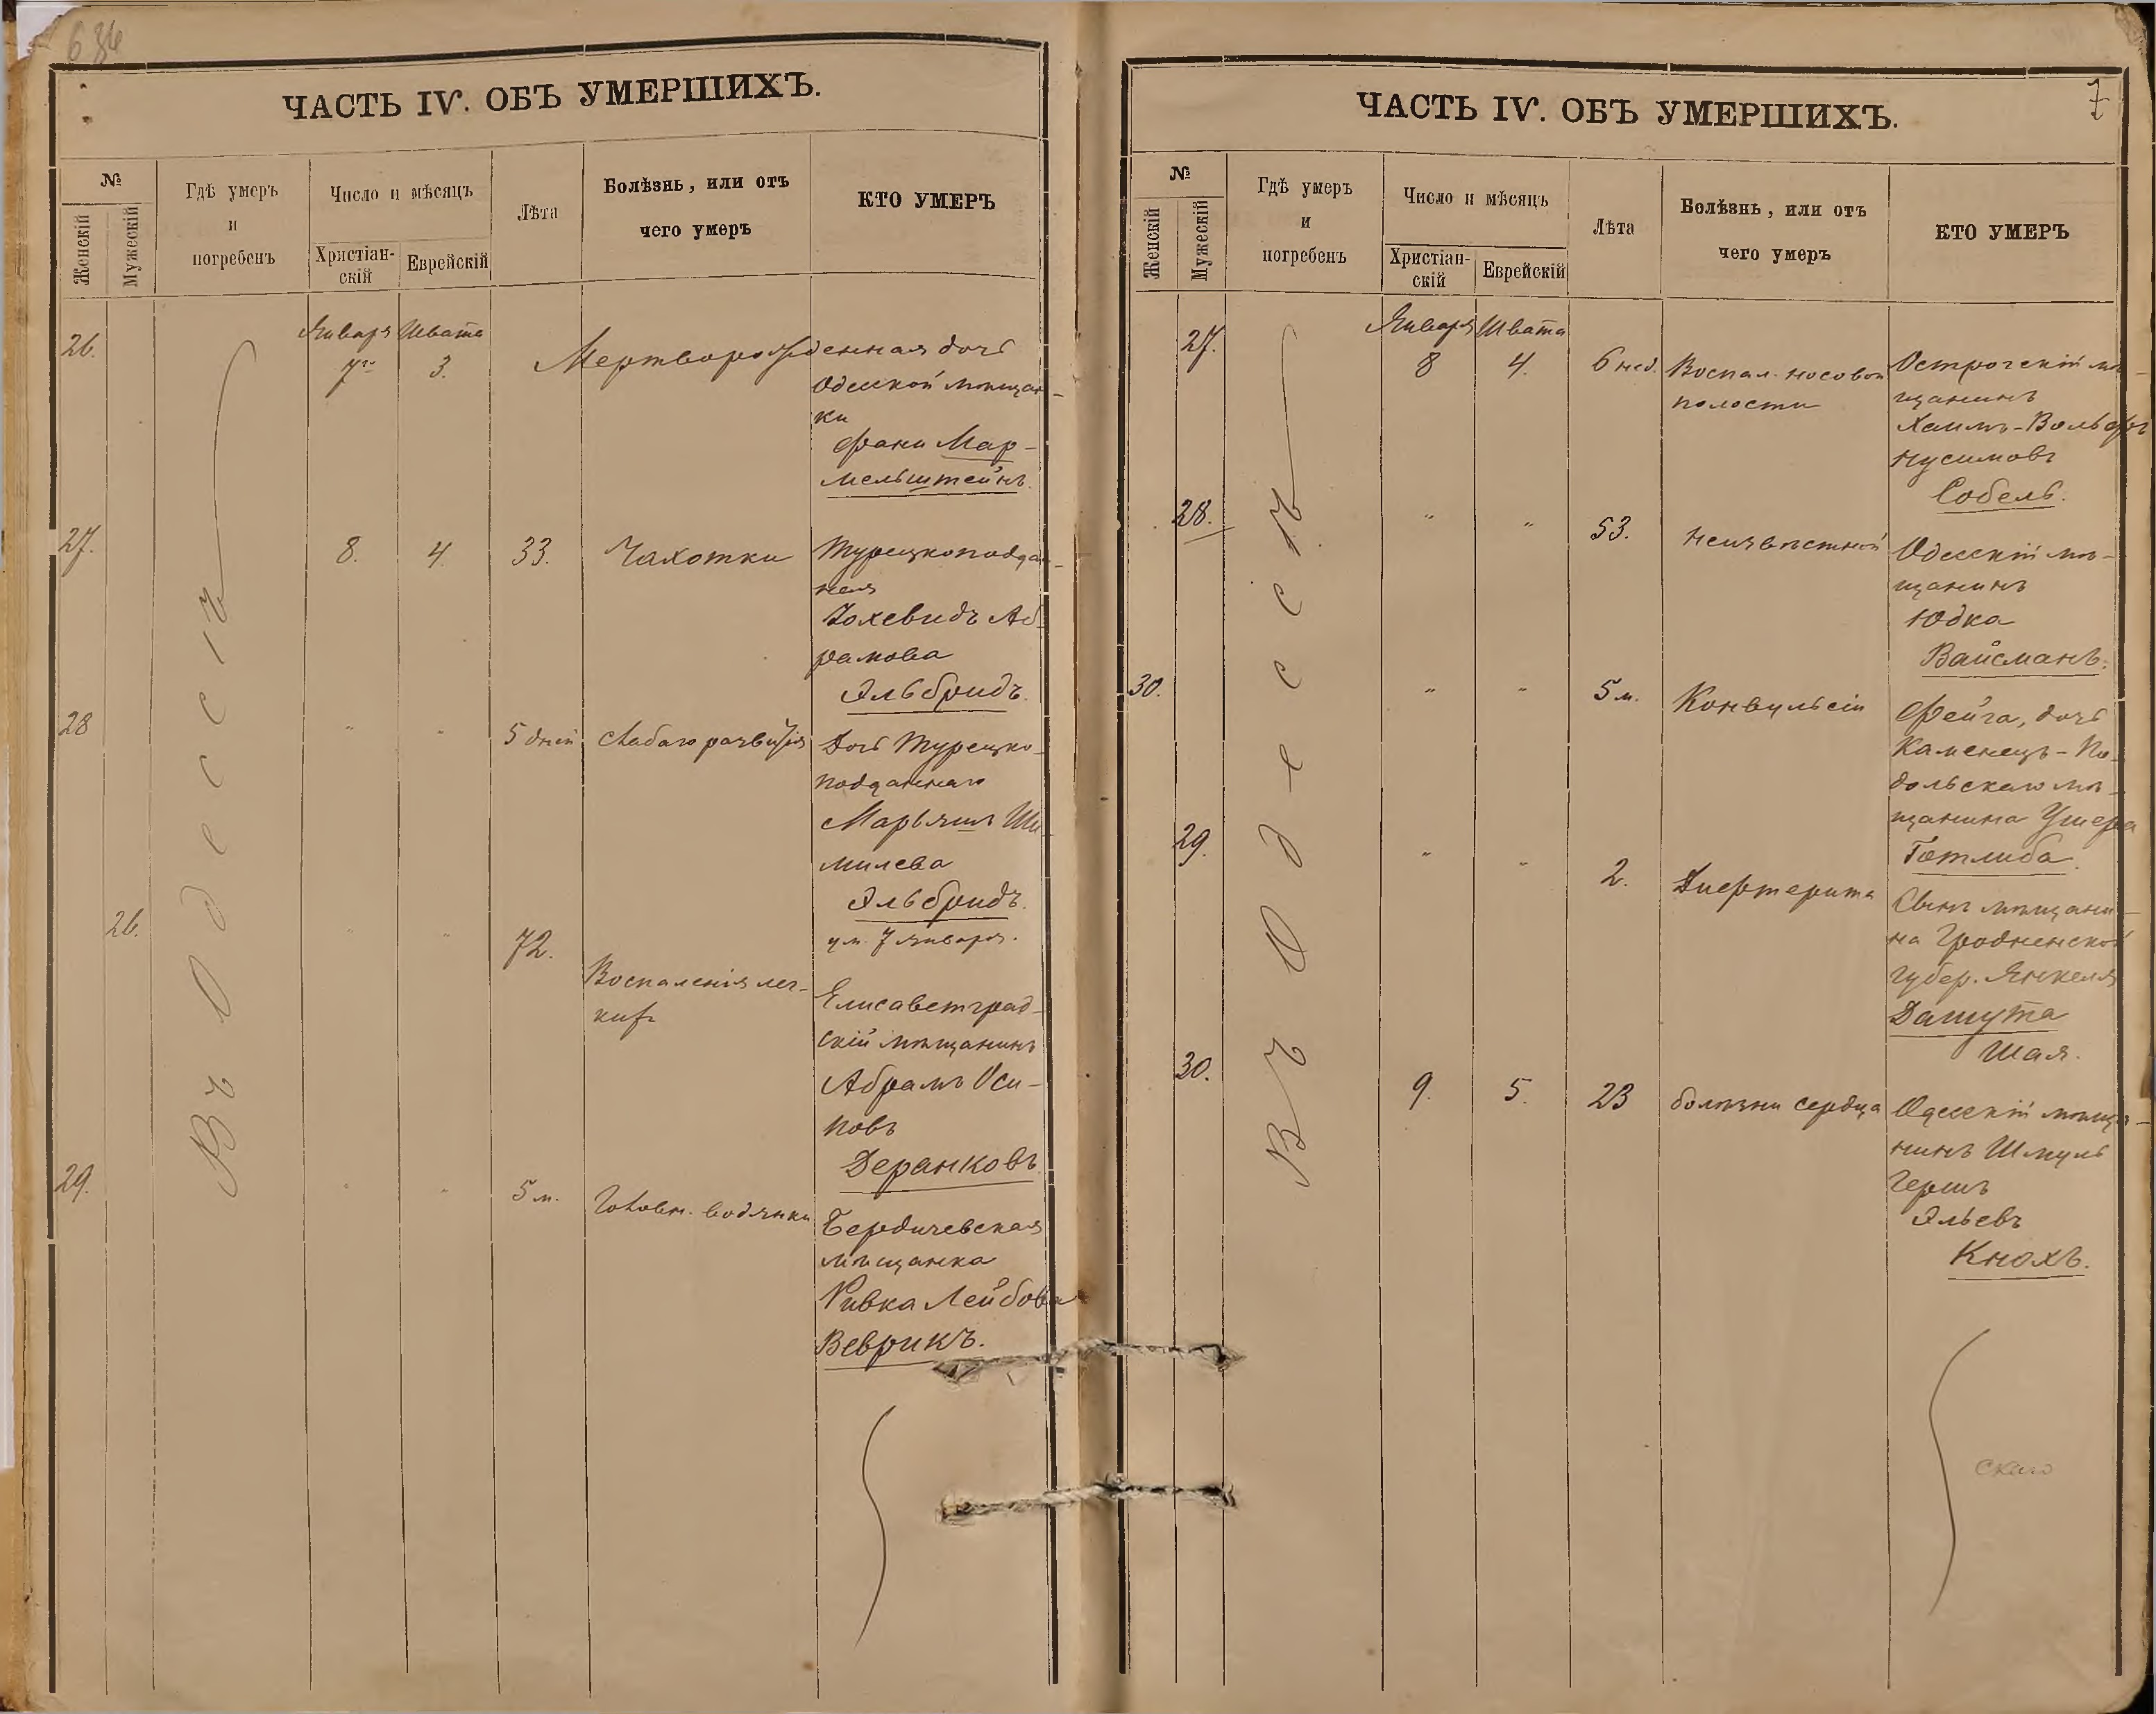 ЧАСТЬ IV. ОБЪ УМЕРШИХЪ.
№
Женскій
Мужескій
Гдѣ умеръ
и
погребенъ
Число и мѣсяцъ
Христіан-
скій
Еврейскій
Лѣта
Болѣзнь, или отъ
чего умеръ
КТО УМЕРЪ
Въ Одессѣ
Января Швата
26. 7го 3. Мертворожденная дочь
Одесской мѣщан-
ки
Фани Мар-
мельштейнъ.
27. 8. 4. 33. Чахотки Турецкоподдан-
ная
Іохевидъ Аб-
рамова
Эльбридъ.
28 " " 5 дней слабаго развитія Дочь Турецко-
подданнаго
Марьямъ Шм-
милева
Эльбридъ.
ум. 7 января.
26. " " 72. Воспаленія лег-
кихъ
Елисаветград-
скій мѣщанинъ
Абрамъ Оси-
повъ
Деранковъ
29. " " 5 м. Головн. водянки
Бердичевская
мѣщанка
Ривка Лейбова
Веврикъ.
7
ЧАСТЬ IV. ОБЪ УМЕРШИХЪ.
№
Женскій
Мужескій
Гдѣ умеръ
и
погребенъ
Число и мѣсяцъ
Христіан-
скій
Еврейскій
Лѣта
Болѣзнь, или отъ
чего умеръ
КТО УМЕРЪ
Въ Одессѣ
Января Швата
27. 8 4. 6 нед. Воспал. носовой Острогскій мѣ-
полости щанинъ
Хаимъ-Вольфъ
Нусимовъ
Собель.
28. " " 53. неизвѣстной Одесскій мѣ-
щанинъ
Юдка
Вайсманъ.
30. " " 5 м. Конвульсіи Фейга, дочь
Каменецъ-По-
дольскаго мѣ-
щанина Ушера
Готлиба.
29. " " 2. Дифтерита Сынъ мѣщани-
на Гродненской
губер. Янкеля
Дашута
Шая.
30. 9. 5. 23 болѣзни сердца Одесскій мѣща-
нинъ Шмуль
Гершъ
Эльевъ
Кнохъ.
скаго